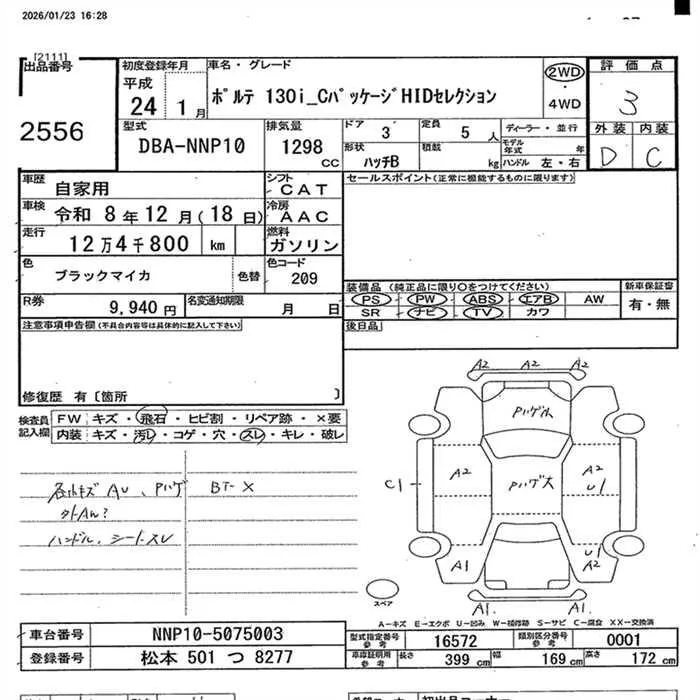 2026/01/23 16:28
[2111]
出品番号
2556
初度登録年月
平成
24 1月
車名・グレード
ポルテ 130i_CパッケージHIDセレクション
2WD
・
4WD
評価点
3
外装 内装
D C
型式
DBA-NNP10
排気量
1298
CC
ドア
3
定員
5人
形状
ハッチB
積載
kg
ディーラー・並行
モデル年式 年
ハンドル 左・右
車歴
自家用
シフト
CAT
車検
令和 8年12月(18日)
冷房
AAC
走行
12万4千800 km
燃料
ガソリン
色
ブラックマイカ
色替
色コード
209
R券
9,940円
名変通知期限
月 日
セールスポイント(正常に機能するものに限ります)
装備品(純正品に限り○をつけてください)
PS PW ABS エアB AW
SR ナビ TV カワ
新車保証書
有・無
後日品
注意事項申告欄(不具合内容等は具体的に記入して下さい)
修復歴 有〔箇所 〕
検査員記入欄
FW キズ・飛石・ヒビ割・リペア跡・×要
内装 キズ・汚レ・コゲ・穴・スレ・キレ・破レ
各所キズ AU、Pハゲ BT-X
ハンドル、シートスレ
A2 A2 A2
Pハゲ小
A2
C1
Pハゲ大
A2
U1
A1
U1
A2
A1. A1.
スペア
A-キズ E-エクボ U-凹み W-補修跡 S-サビ C-腐食 XX-交換済
車台番号
NNP10-5075003
登録番号
松本 501 つ 8277
型式指定番号
参考
16572
類別区分番号
参考
0001
車庫証明用
参考
長さ
399 cm
幅
169 cm
高さ
172 cm